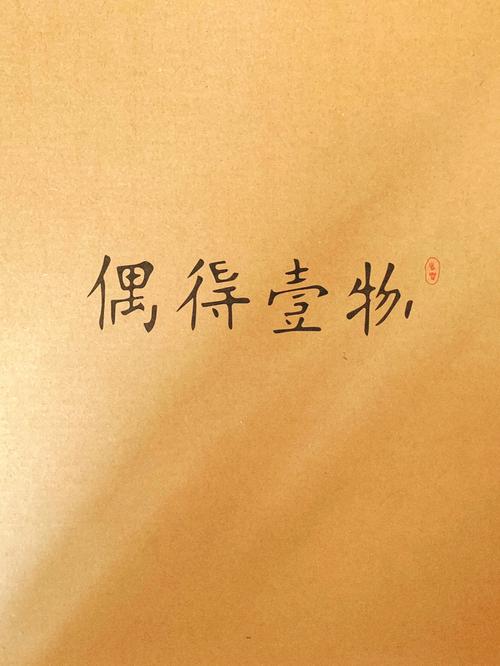 偶得壹物